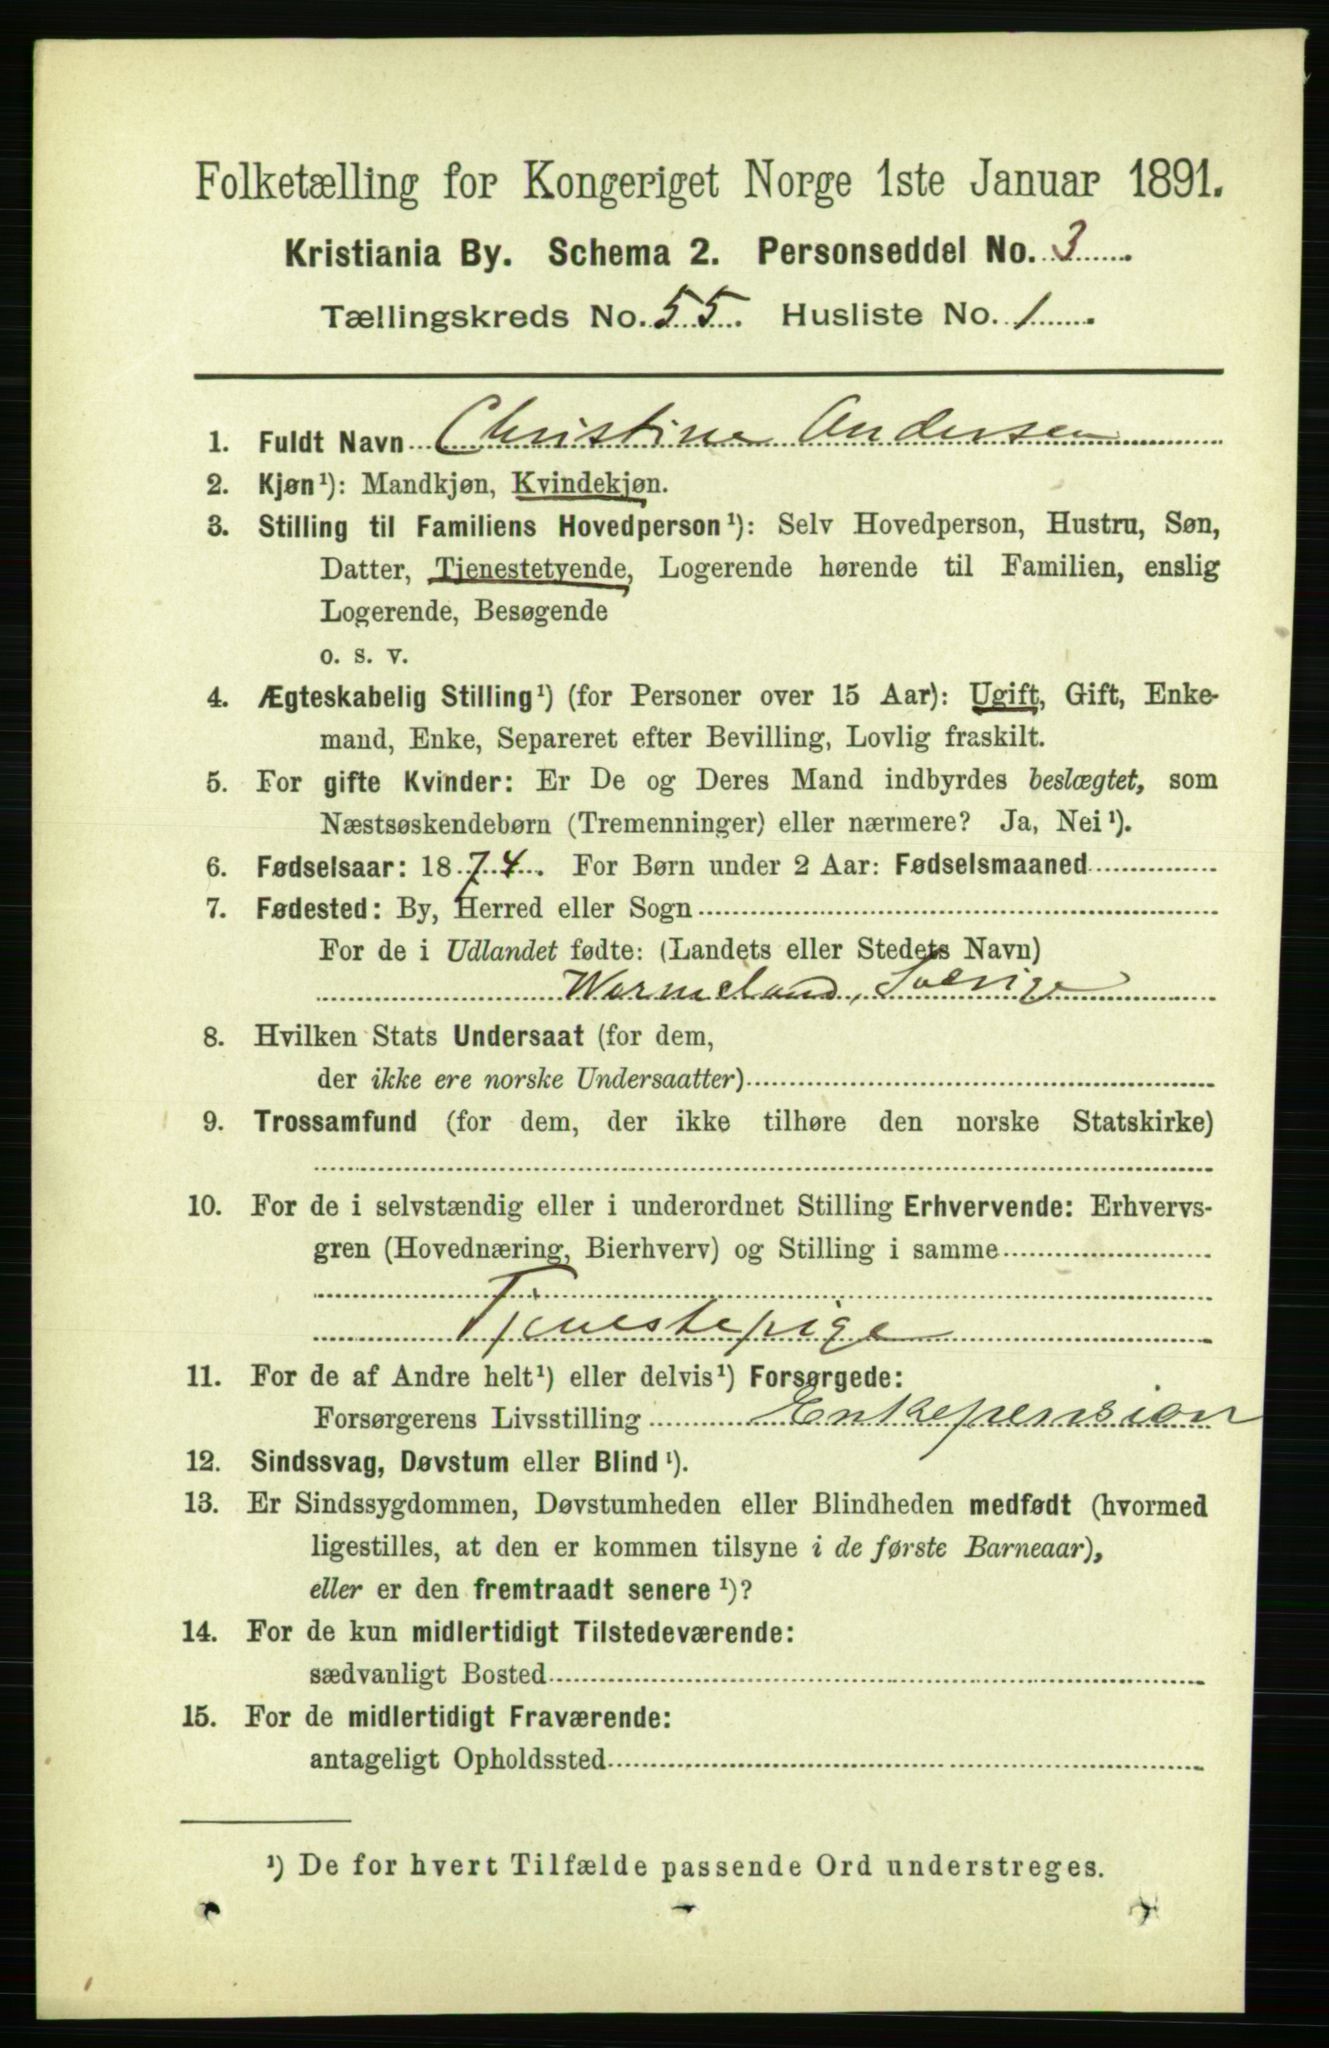 Folketælling for Kongeriget Norge 1ste Januar 1891.
Kristiania By. Schema 2. Personseddel No. 3
Tællingskreds No. 55. Husliste No. 1
1. Fuldt Navn Christine Andersen
2. Kjøn¹): Mandkjøn, Kvindekjøn.
3. Stilling til Familiens Hovedperson¹): Selv Hovedperson, Hustru, Søn,
Datter, Tjenestetyende, Logerende hørende til Familien, enslig
Logerende, Besøgende
o. s. v.
4. Ægteskabelig Stilling¹) (for Personer over 15 Aar): Ugift, Gift, Enke-
mand, Enke, Separeret efter Bevilling, Lovlig fraskilt.
5. For gifte Kvinder: Er De og Deres Mand indbyrdes beslægtet, som
Næstsøskendebørn (Tremenninger) eller nærmere? Ja, Nei¹).
6. Fødselsaar: 1874. For Børn under 2 Aar: Fødselsmaaned
7. Fødested: By, Herred eller Sogn
For de i Udlandet fødte: (Landets eller Stedets Navn)
Wermeland, Sverige
8. Hvilken Stats Undersaat (for dem,
der ikke ere norske Undersaatter)
9. Trossamfund (for dem, der ikke tilhøre den norske Statskirke)
10. For de i selvstændig eller i underordnet Stilling Erhvervende: Erhvervs-
gren (Hovednæring, Bierhverv) og Stilling i samme
Tjenestepige
11. For de af Andre helt¹) eller delvis¹) Forsørgede:
Forsørgerens Livsstilling Enkepension
12. Sindssvag, Døvstum eller Blind¹).
13. Er Sindssygdommen, Døvstumheden eller Blindheden medfødt (hvormed
ligestilles, at den er kommen tilsyne i de første Barneaar),
eller er den fremtraadt senere¹)?
14. For de kun midlertidigt Tilstedeværende:
sædvanligt Bosted
15. For de midlertidigt Fraværende:
antageligt Opholdssted
¹) De for hvert Tilfælde passende Ord understreges.